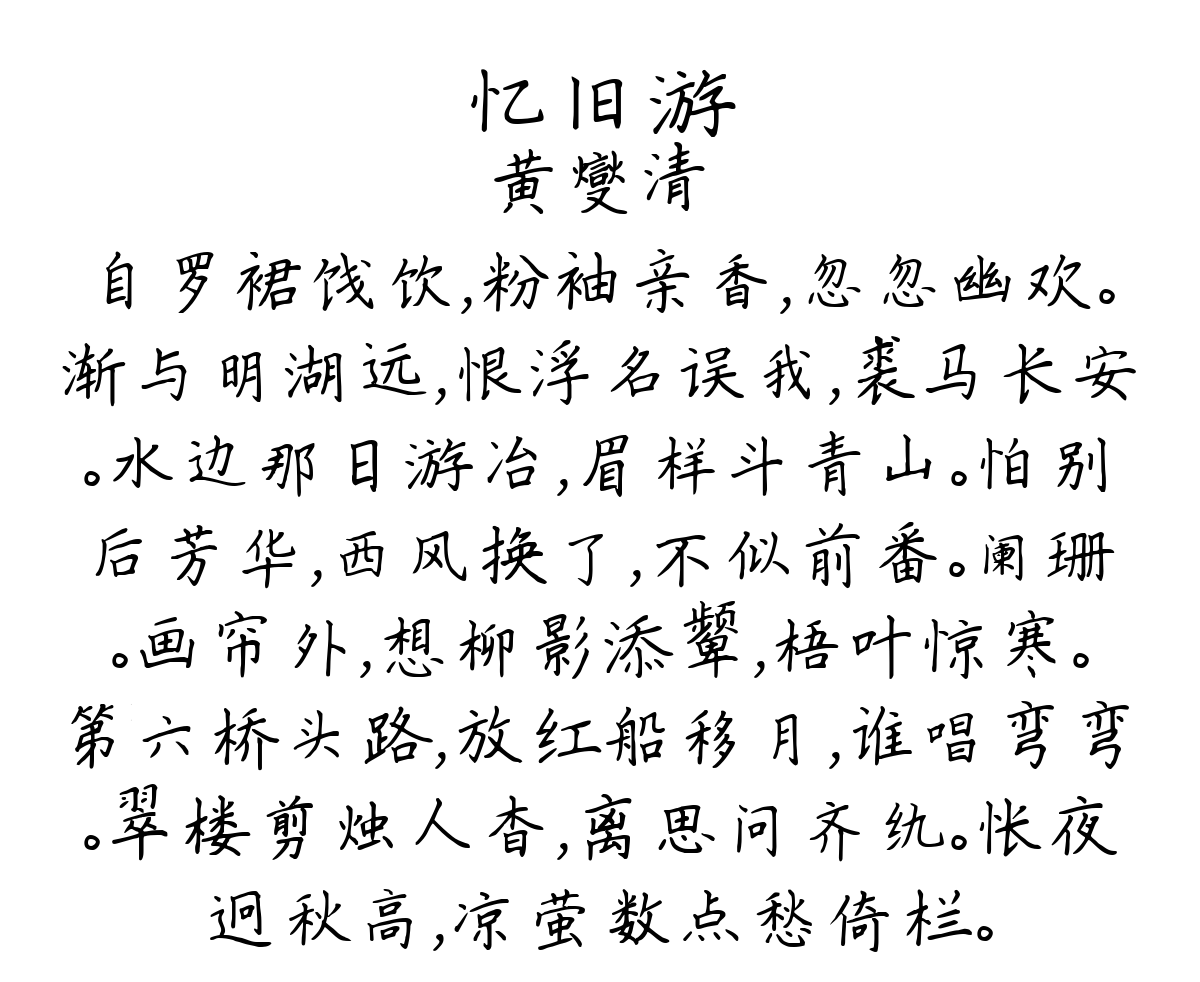 忆旧游
黄燮清
自罗裙饯饮,粉袖亲香,忽忽幽欢。
渐与明湖远,恨浮名误我,裘马长安
。水边那日游冶,眉样斗青山。怕别
后芳华,西风换了,不似前番。阑珊
。画帘外,想柳影添颦,梧叶惊寒。
第六桥头路,放红船移月,谁唱弯弯
。翠楼剪烛人杳,离思问齐纨。怅夜
迥秋高,凉萤数点愁倚栏。